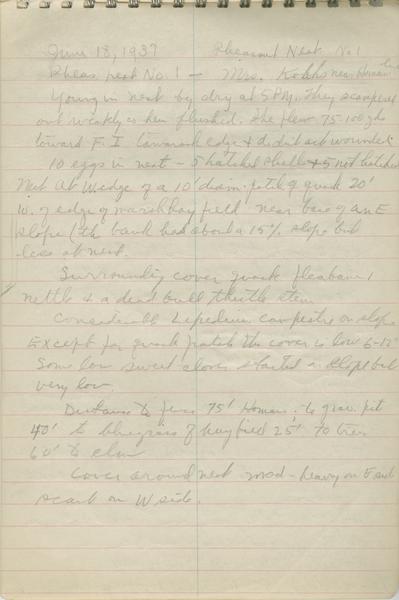 June 18, 1937 Pheasant Nest No 1
Pheas. nest No. 1 - Mrs. near
Young in nest by dry at 5 PM. They scampered
out quickly as hen flushed. She flew 75-100 yds
toward F. I. edge & did not act wounded
10 eggs in nest - 5 hatched shells & 5 not hatched
Nest at W edge of a 10' diam. patch of quack 20'
W. of edge of marsh hay field near base of an E
slope / the bank had about a 15% slope but
less at nest.
Surrounding cover quack, fleabane,
nettle & a dead bull thistle stem
Considerable Lepidium campestre on slope
Except for quack patch the cover is low 6-12"
Some low sweet clover started on slope but
very low.
Distance to fence 75' to grav. pit
40' to bluegrass of hay field 25' to tree
60' to elm
Cover around nest mod-heavy on E and
scant on W side.